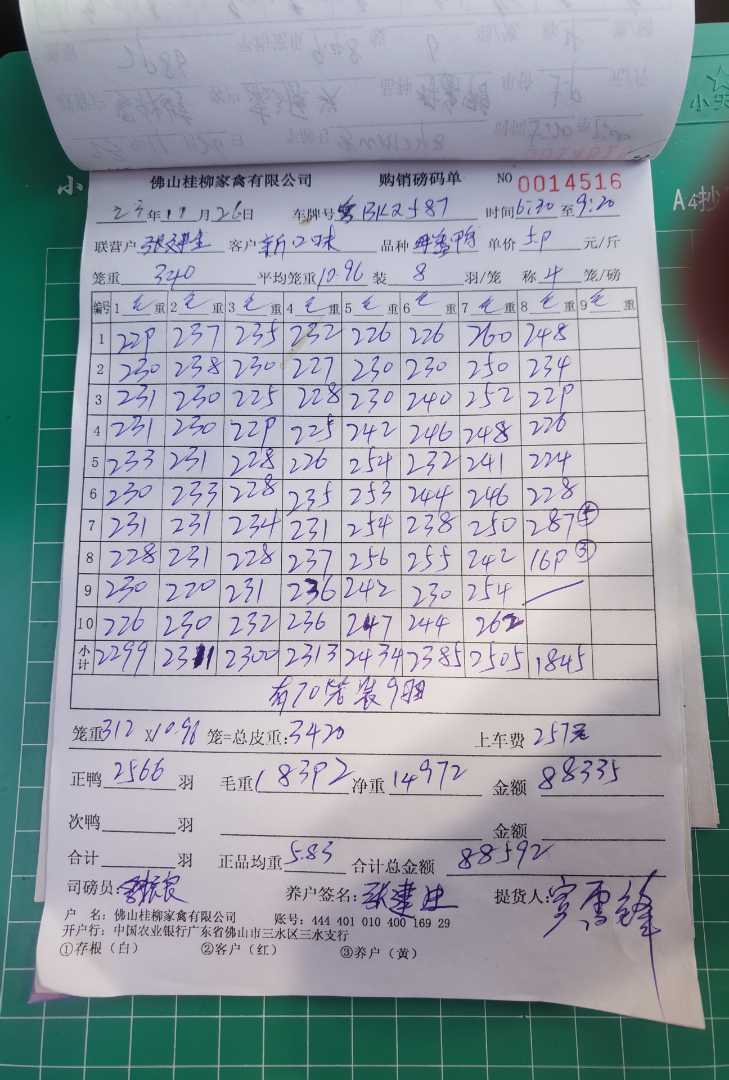 佛山桂柳家禽有限公司 购销磅码单 NO 0014516
23年11月26日 车牌号 BKZ587 时间6:30至9:20
联营户 张建生 客户 新口味 品种 单价 5.9 元/斤
笼重 340 平均笼重10.96 装 8 羽/笼 称 4 笼/磅
编号 1 毛重 2 毛重 3 毛重 4 毛重 5 毛重 6 毛重 7 毛重 8 毛重 9 毛重
1 229 237 235 232 226 226 260 248
2 230 238 230 227 230 230 250 234
3 231 230 225 228 230 240 252 229
4 231 230 229 225 242 246 248 226
5 233 231 228 226 254 232 241 224
6 230 233 228 235 253 244 246 228
7 231 231 234 231 254 238 250 287⑤
8 228 231 228 237 256 255 242 169③
9 230 220 231 236 242 230 254
10 226 230 232 236 247 244 262
小计 2299 2311 2300 2313 2434 2385 2505 1845
有70笼装9羽
笼重312 X10.96 笼=总皮重:3420 上车费 257元
正鸭 2566 羽 毛重18392 净重 14972 金额 88335
次鸭 羽 金额
合计 羽 正品均重 5.83 合计总金额 88592
司磅员: 养户签名: 张建生 提货人:
户 名: 佛山桂柳家禽有限公司 账号: 444 401 010 400 169 29
开户行: 中国农业银行广东省佛山市三水区三水支行
①存根(白) ②客户(红) ③养户(黄)
小
A4抄
小